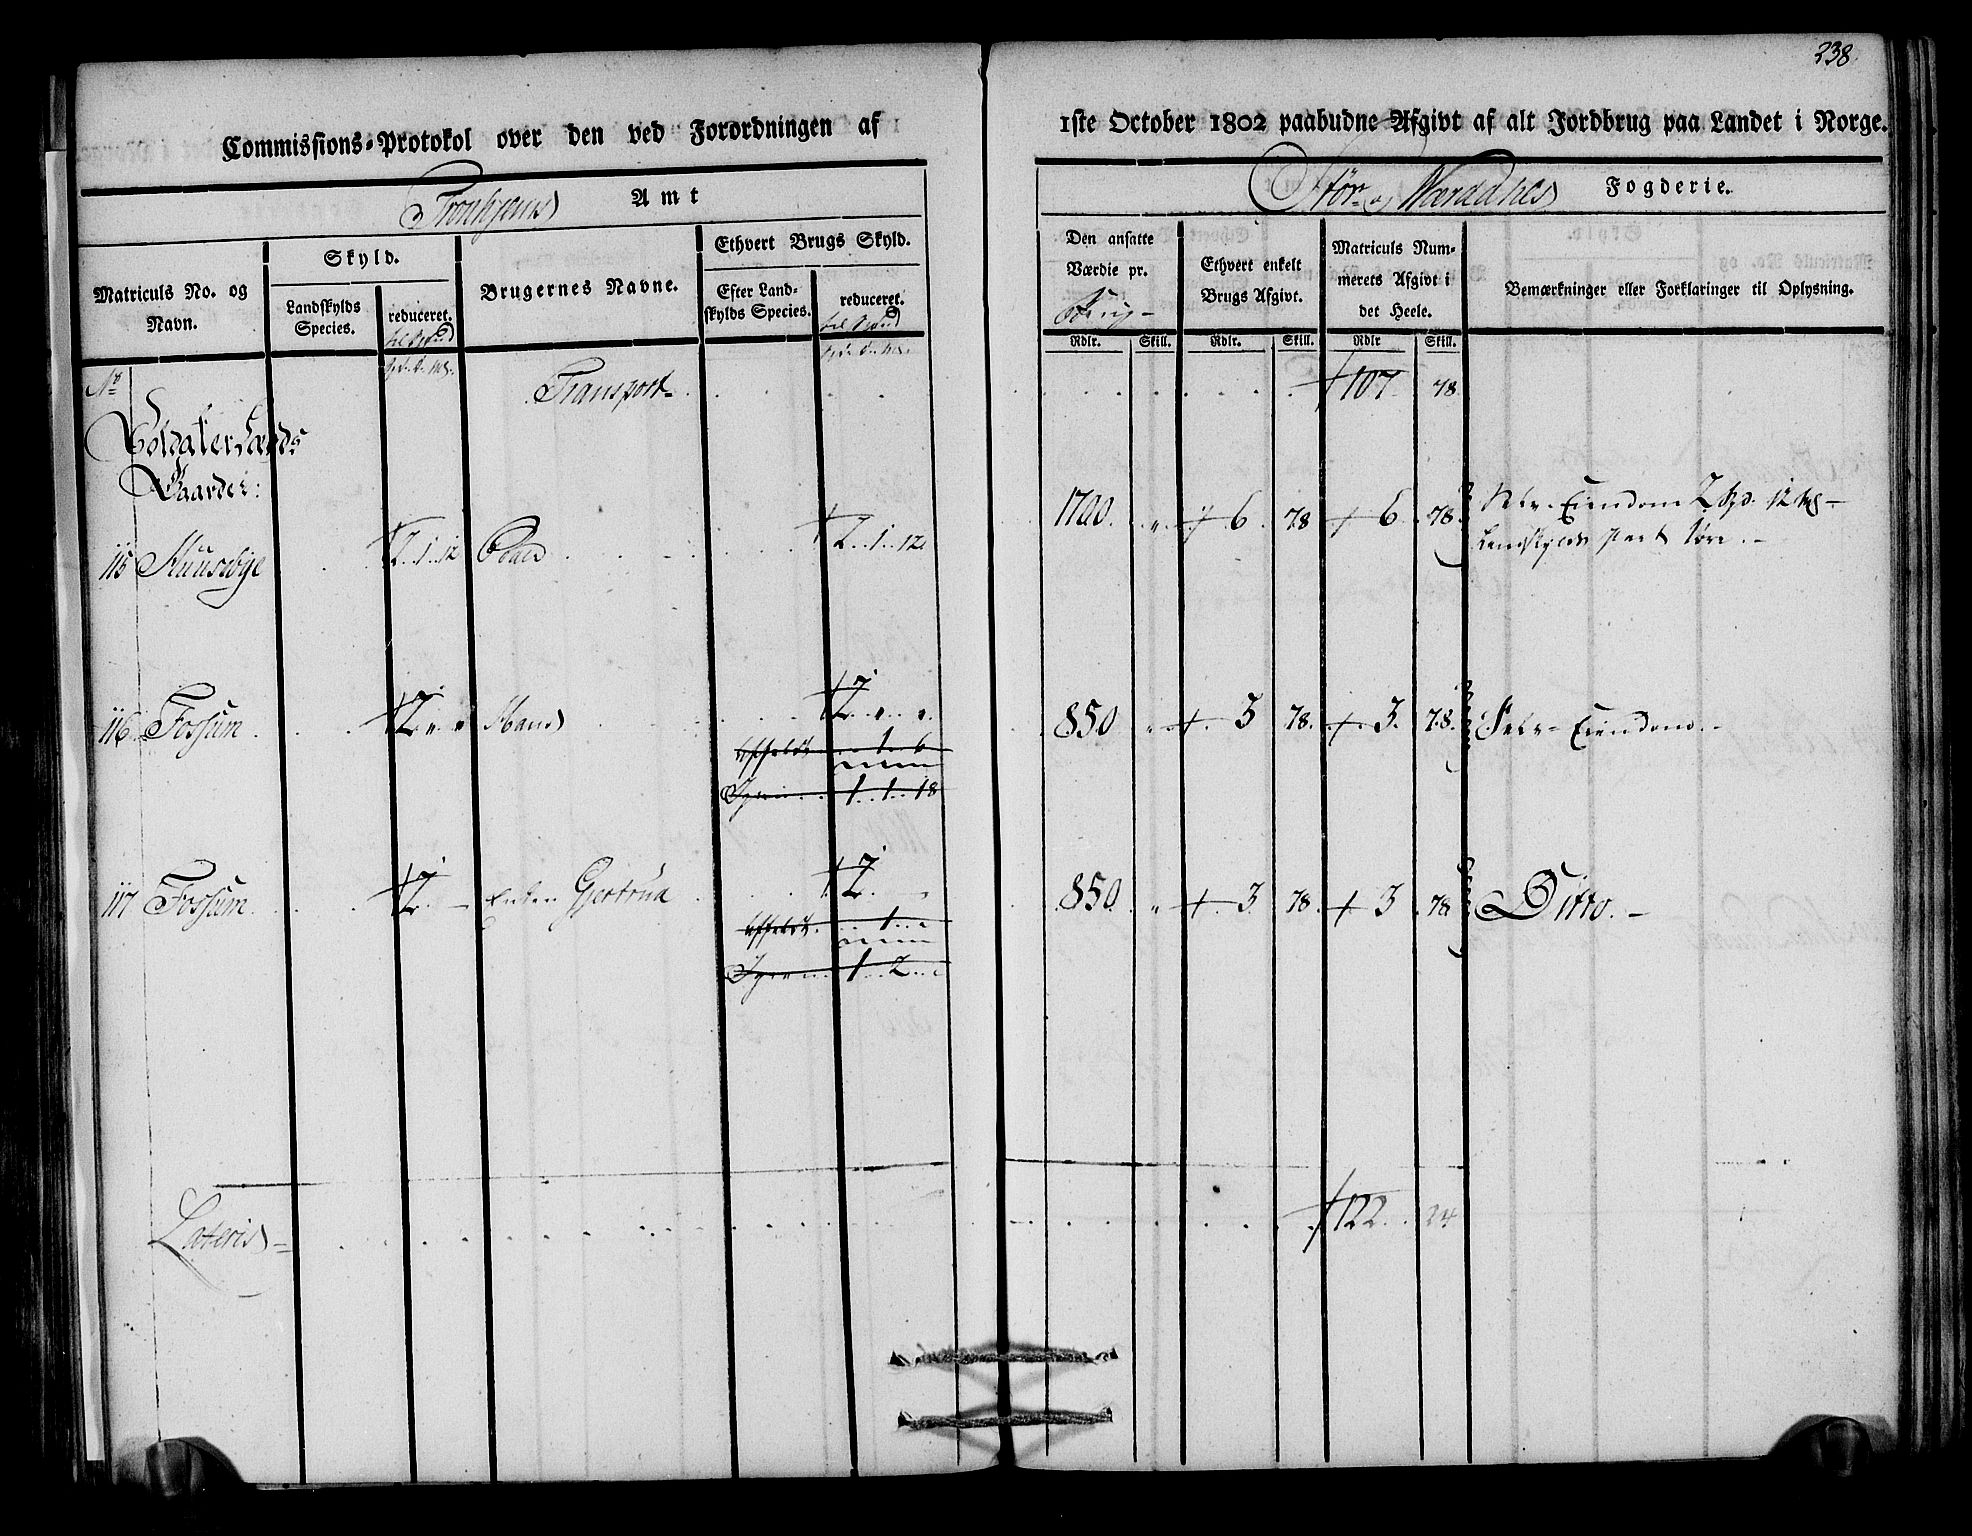 238
Commissions-Protokol over den ved Forordningen af 1ste October 1802 paabudne Afgivt af alt Jordbrug paa Landet i Norge.
Tronhjems Amt
Stør- og Værdahls Fogderie.
Matriculs No. og Navn.
Skyld.
Landskylds Species.
reduceret.
Brugernes Navne.
Ethvert Brugs Skyld.
Efter Landskylds Species.
reduceret.
Den ansatte Værdie pr.
Brug
Ethvert enkelt Brugs Afgivt.
Matriculs Nummerets Afgivt i det Heele.
Bemærkninger eller Forklaringer til Oplysning.
Rdlr. Skill. Rdlr. Skill. Rdlr Skill.
No
Transport 107 78
Soldater Lægds
Gaarder:
115 Muusebye 2. 1. 12 Peder 2. 1. 12 1700 " 6 78 6 78 Selv-Eiendom 2 Spd. 12 mk
116 Fossum 2 " " Hans 2 " " 850 " 3 78 3 78 Selv-Eiendom
1 6
Igien 1 1 18
117 Fossum 2 Enken Gjertrud 2 850 " 3 78 3 78 Ditto.
1
Igien 1 2
Lateris 122 24